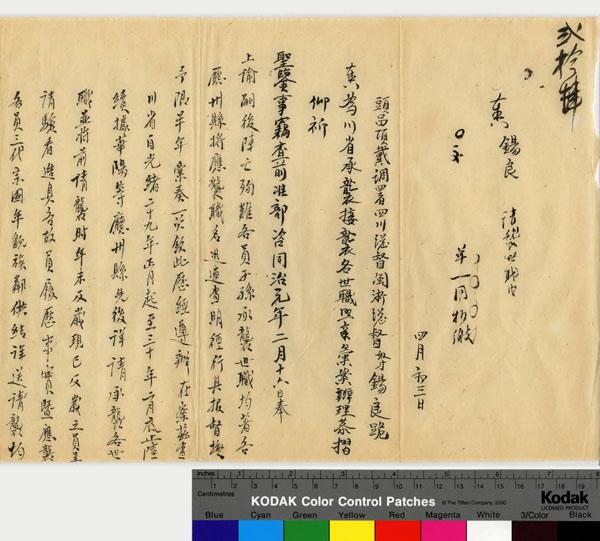 奏 錫良 請襲世職由
四月初三日
頭品頂戴調署四川總督閩浙總督臣錫良跪
奏為川省承襲接襲各世職照章彙案辦理恭摺
仰祈
聖鑒事竊查前准部咨同治元年二月十六日奉
上諭嗣後陣亡殉難各員子孫承襲世職均著各
廳州縣將應襲職名迅速查明徑行具報督撫
予限半年彙奏一次欽此歷經遵辦在案茲查
川省自光緒二十九年正月起至三十年二月底止陸
續據華陽等廳州縣先後詳請承襲各世
職並將前請襲時年未及歲現已及歲之員呈
請驗看造具各故員履歷事實暨應襲
各員三代宗圖年貌族鄰供結詳送請襲均
Inches
Centimetres
KODAK Color Control Patches
© The Tiffen Company, 2000
Kodak
LICENSED PRODUCT
Blue Cyan Green Yellow Red Magenta White 3/Color Black